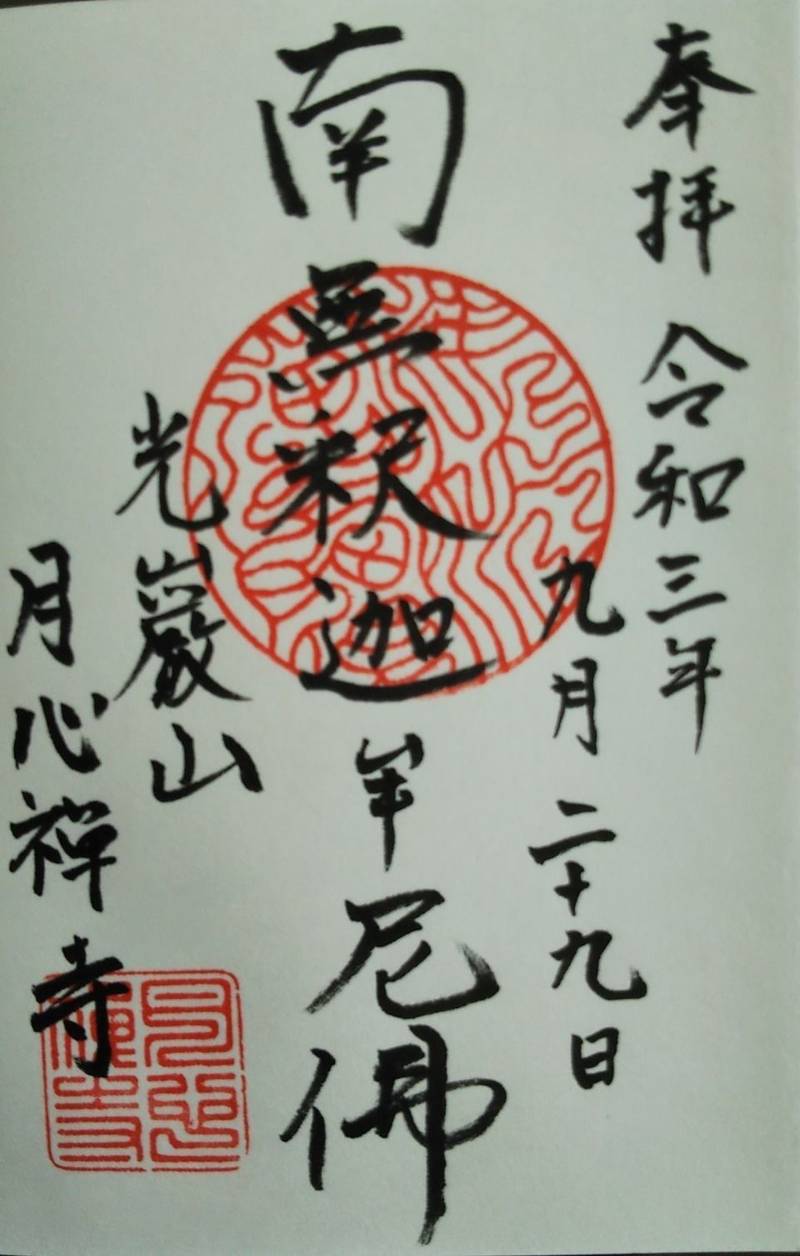 奉拝 令和三年
九月二十九日
南無釈迦牟尼佛
光巖山
月心禅寺